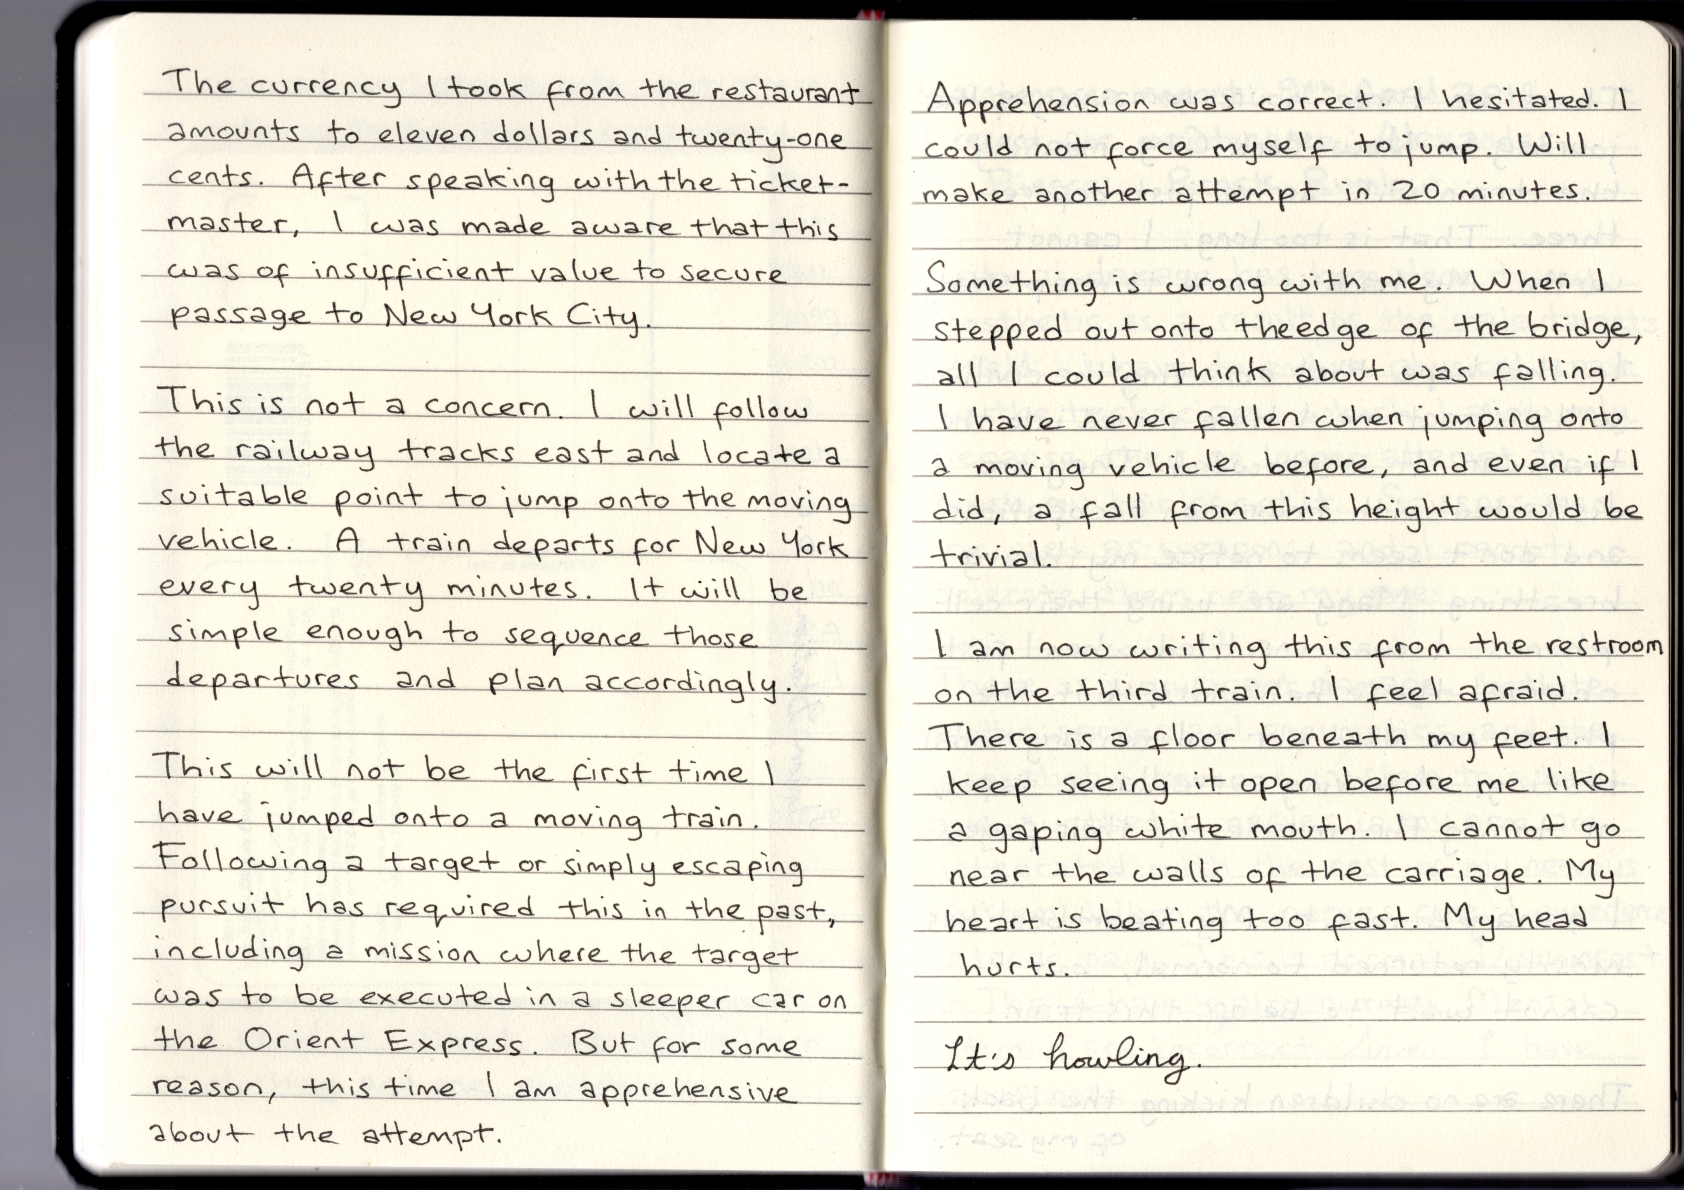 The currency I took from the restaurant
amounts to eleven dollars and twenty-one
cents. After speaking with the ticket-
master, I was made aware that this
was of insufficient value to secure
passage to New York City.
This is not a concern. I will follow
the railway tracks east and locate a
suitable point to jump onto the moving
vehicle. A train departs for New York
every twenty minutes. It will be
simple enough to sequence those
departures and plan accordingly.
This will not be the first time I
have jumped onto a moving train.
Following a target or simply escaping
pursuit has required this in the past,
including a mission where the target
was to be executed in a sleeper car on
the Orient Express. But for some
reason, this time I am apprehensive
about the attempt.
Apprehension was correct. I hesitated. I
could not force myself to jump. Will
make another attempt in 20 minutes.
Something is wrong with me. When I
stepped out onto the edge of the bridge,
all I could think about was falling.
I have never fallen when jumping onto
a moving vehicle before, and even if I
did, a fall from this height would be
trivial.
I am now writing this from the restroom
on the third train. I feel afraid.
There is a floor beneath my feet. I
keep seeing it open before me like
a gaping white mouth. I cannot go
near the walls of the carriage. My
heart is beating too fast. My head
hurts.
It's howling.